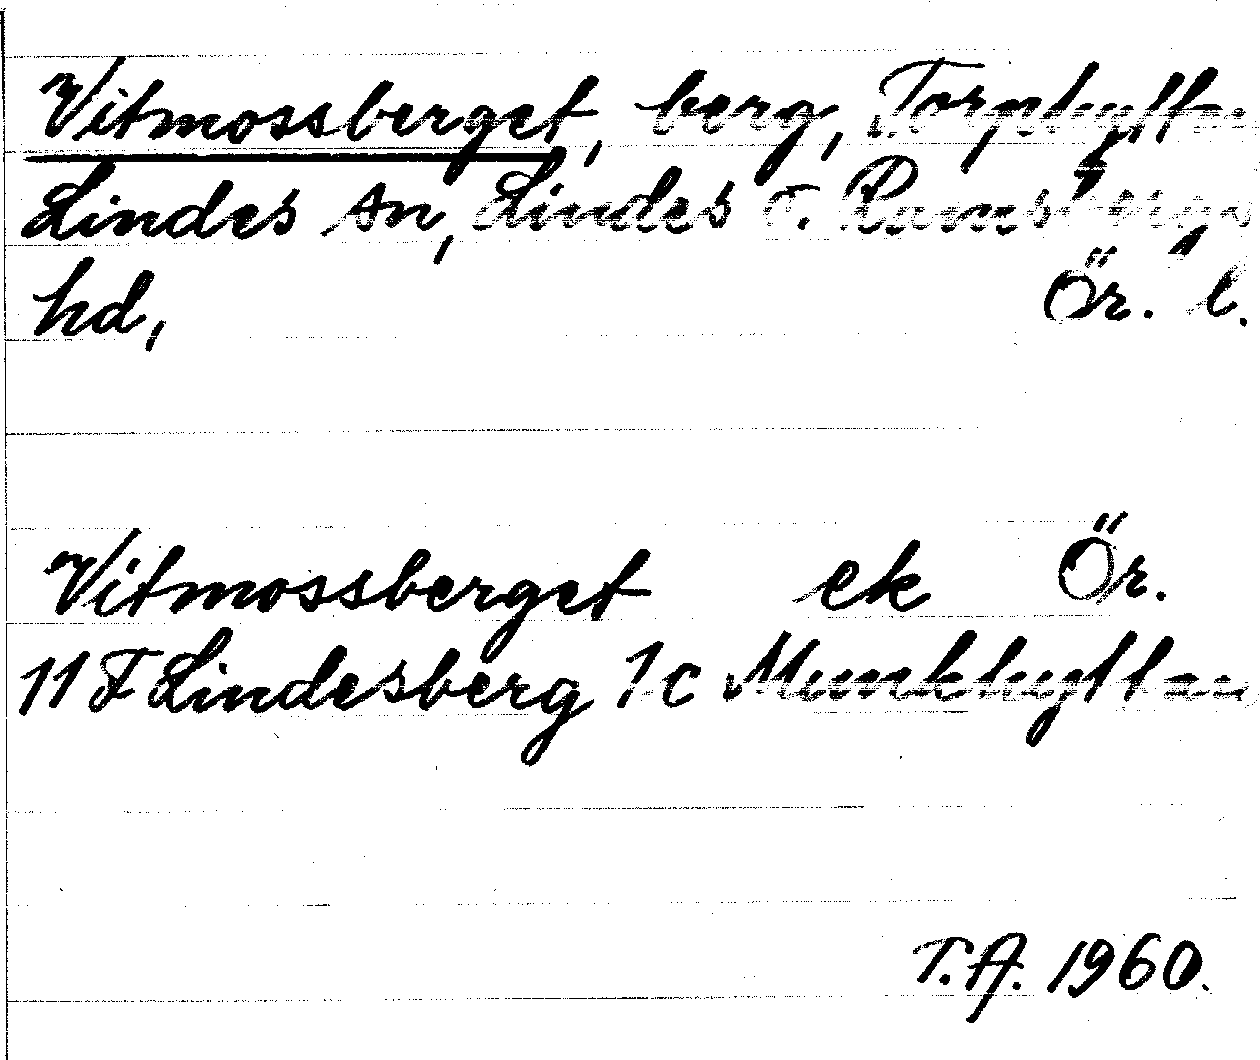 Vitmossberget, berg, Torphyttan
Lindes sn, Lindes o. Ramsbergs
hd, Ör. l.
Vitmossberget ek Ör.
11 F Lindesberg 1c Munkhyttan
T.A. 1960.